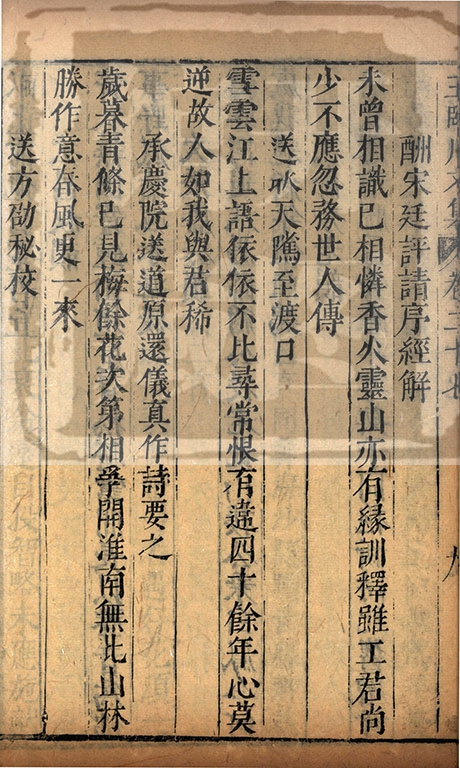 王臨川文集 卷三十七 九
酬宋廷評請序經解
未曾相識已相憐香火靈山亦有緣訓釋雖工君尚
少不應忽務世人傳
送耿天隲至渡口
雪雲江上語依依不比尋常恨有違四十餘年心莫
逆故人如我與君稀
承慶院送道原還儀真作詩要之
歲暮青條已見梅餘花次第相爭開淮南無此山林
勝作意春風更一來
送方劭秘校